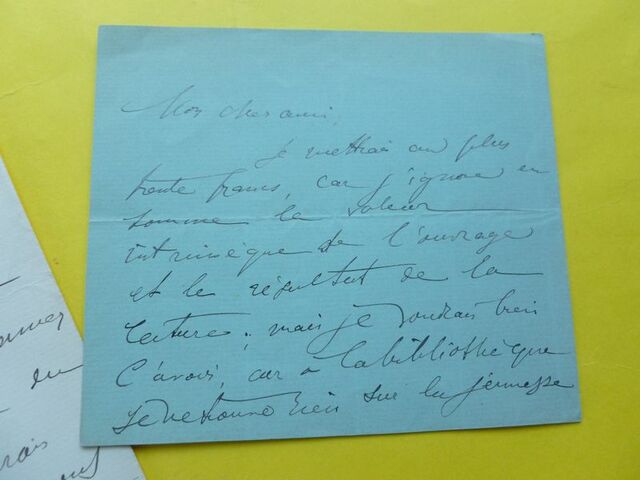 Mon cher ami,
Je mettrai au plus
trente francs, car j'ignore en
somme la valeur
intrinsèque de l'ouvrage
et le résultat de la
lecture ; mais je voudrais bien
l'avoir, car à la bibliothèque
je ne trouve rien sur la jeunesse
en